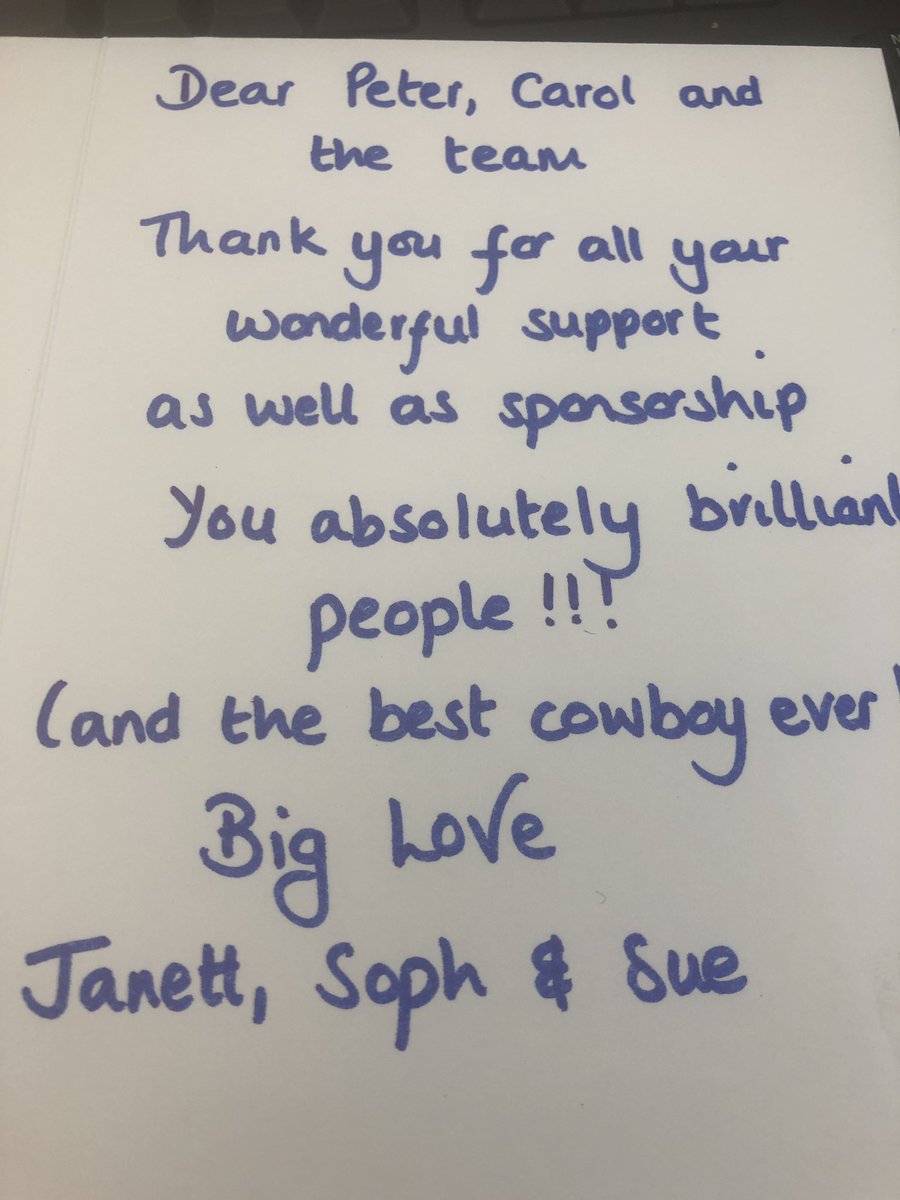 Dear Peter, Carol and
the team
Thank you for all your
wonderful support
as well as sponsorship
You absolutely brilliant
people !!!
(and the best cowboy ever!
Big Love
Janett, Soph & Sue